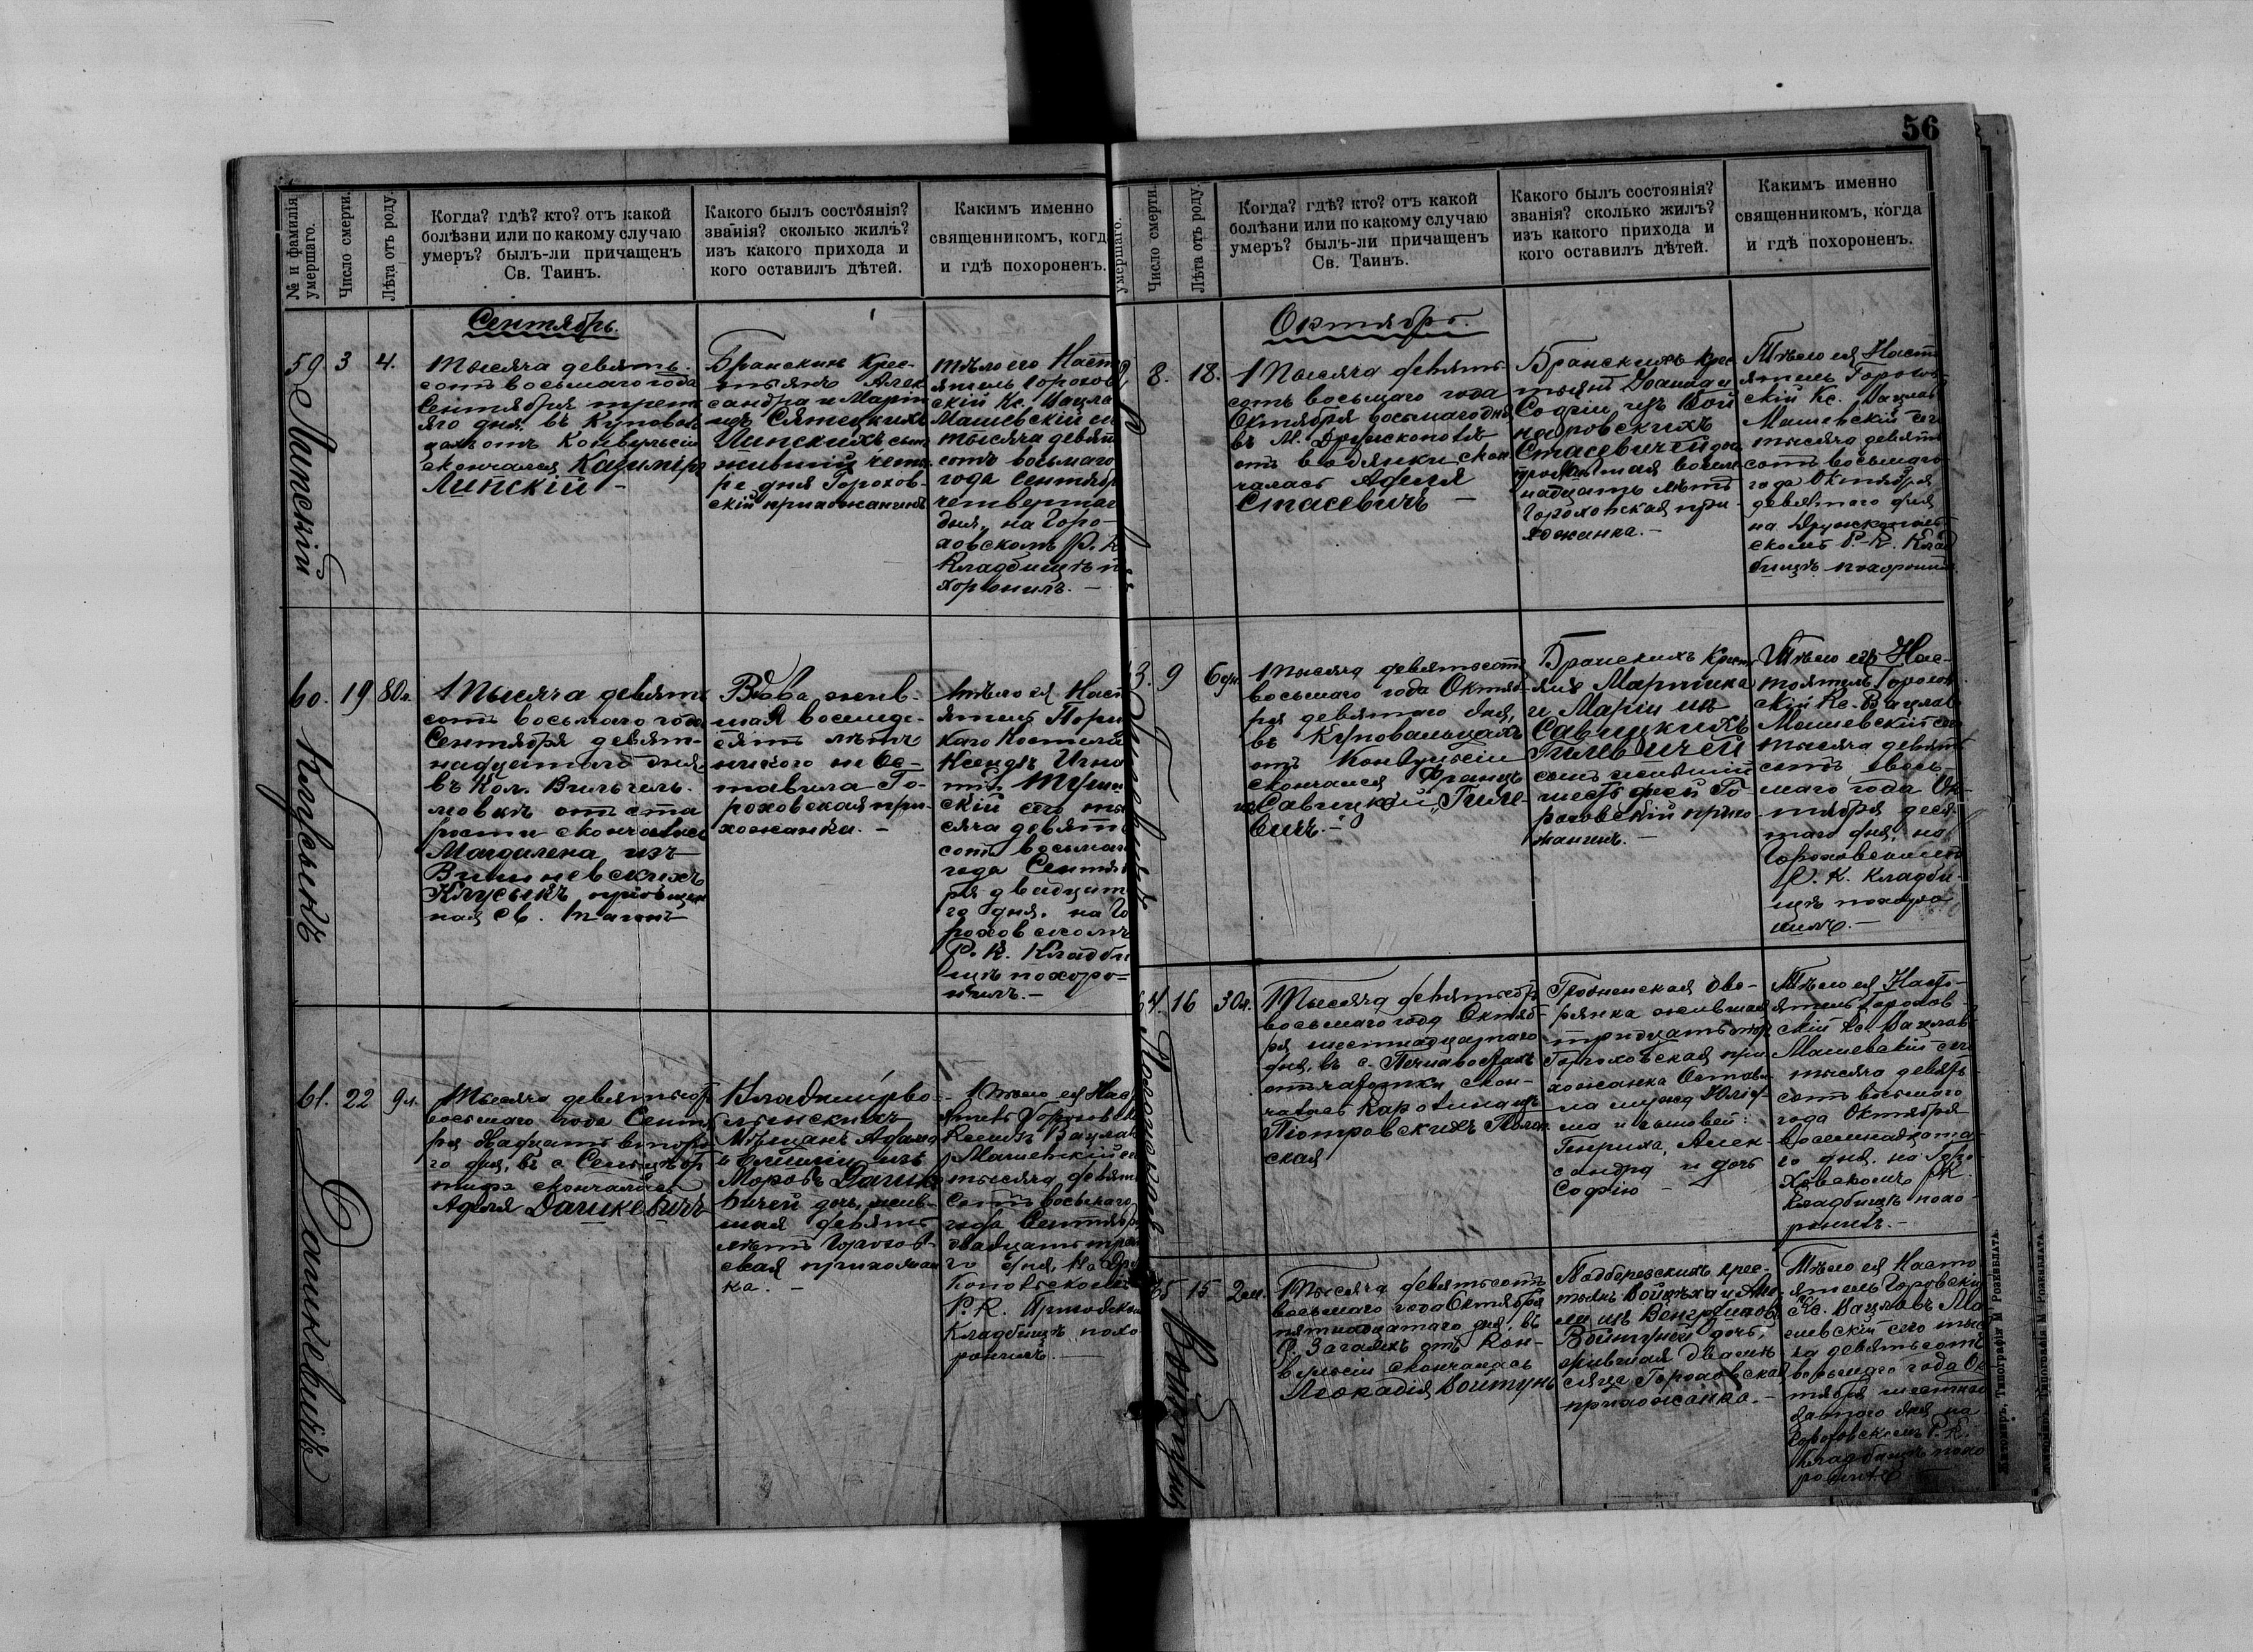 56
№ и фамилія
умершаго.
Число смерти.
Лѣта отъ роду.
Когда? гдѣ? кто? отъ какой
болѣзни или по какому случаю
умеръ? былъ-ли причащенъ
Св. Таинъ.
Какого былъ состоянія?
званія? сколько жилъ?
изъ какого прихода и
кого оставилъ дѣтей.
Какимъ именно
священникомъ, когд
и гдѣ похороненъ.
Сентябрь.
59.
Липскій
3
4.
Тысяча девять
сотъ восьмаго года
Сентября треть
яго дня, въ Куповаль
цахъ отъ Конвульсіи
скончался Казиміръ
Липскій –
Бранскихъ Крес-
тьянъ Алек
сандра и Маріи
изъ Сятецкихъ
Липскихъ сынъ
жившій четы
ре дня Горохов-
скій прихожанинъ
Тѣло его Наст
ятель Горохов
скій Кс. Вацла
Машевскій се
тысяча девят
сотъ восьмаго
года Сентябр
четвертаг
дня, на Горо-
ховскомъ Р. К
Кладбищѣ п
хоронилъ. –
60.
Клусыкъ
19
80л.
Тысяча девять
сотъ восьмаго года
Сентября девят-
надцатаго дня,
въ Кол. Вильгель-
мовкѣ отъ ста
рости скончалась
Магдалена изъ
Вишневскихъ
Клусыкъ пріобщен
ная Св. Таинъ
Вдова, жив-
шая восемьде-
сятъ лѣтъ
никого не ос-
тавила Го-
роховская при-
хожанка. –
Тѣло ея Наст
ятель Пори
каго Костела
Ксендзъ Игна
тій
скій сего ты
сяча девять
сотъ восьмаго
года Сентяб
ря двадцат
го дня, на Го
роховскомъ
Р. К. Кладби
щѣ похоро-
нилъ. –
61.
Дашкевичъ
22
9л.
Тысяча девятьсотъ
восьмаго года Сентяб
ря двадцать второ
го дня, въ с.
скончалась
Аделя Дашкевичъ
Владимірво-
лынскихъ
Мѣщанъ Адама
и Эмиліи изъ
Моровъ Дашке
вичей дочь, жив-
шая девять
лѣтъ Горохов-
ская прихожан
ка. –
Тѣло ея Нас
ятель Горохов
Ксендзъ Вацлав
Машевскій се
тысяча девят
сотъ восьмаго
года Сентября
двадцать трет
го дня, на Дру
копольскомъ
Р. К. Приходском
Кладбищѣ похо
ронилъ. –
умершаго.
Число смерти.
Лѣта отъ роду.
Когда? гдѣ? кто? отъ какой
болѣзни или по какому случаю
умеръ? былъ-ли причащенъ
Св. Таинъ.
Какого былъ состоянія?
званія? сколько жилъ?
изъ какого прихода и
кого оставилъ дѣтей.
Какимъ именно
священникомъ, когда
и гдѣ похороненъ.
Октябрь.
8.
18.
Тысяча девять
сотъ восьмаго года
Октября восьмаго дня
въ М. Дружкополѣ
отъ водянки скон
чалась Аделя
Стасевичъ –
Бранскихъ крес
тьянъ и
Софіи изъ Вой
наровскихъ
Стасевичей дочь
прожившая восем
надцать лѣтъ
Гороховская при-
хожанка. –
Тѣло ея Насто
ятель Горохов-
скій Кс. Вацлав
Машевскій сего
тысяча девять
сотъ восьмаго
года Октября
девятаго дня
на Дружкополь
скомъ Р.-К. Клад
бищѣ похоронилъ.
3.
9
6 дн.
Тысяча девятьсотъ
восьмаго года Октяб-
ря девятаго дня,
въ Куповальцахъ
отъ Конвульсіи
скончался Францъ
Гиле-
вичъ. –
Бранскихъ Крест
янъ Мартина
и Маріи изъ
Савицкихъ
Гилевичей
сынъ жившій
шесть дней Го
роховскій прихо
жанинъ. –
Тѣло его Нас-
тоятель Горохов
скій Кс. Вацлав
Машевскій сего
тысяча девять
сотъ вось-
маго года Ок-
тября деся-
таго дня, на
Гороховскомъ
Р. К. Кладби-
щѣ похоро
нилъ. –
64.
16
30л.
Тысяча девятьсотъ
восьмаго года Октяб-
ря шестнадцатаго
дня, въ с.
отъ чахотки скон-
чалась Каролина изъ
Піотровскихъ
ская
Гродненская дво-
рянка жившая
тридцать лѣтъ
Гороховская при
хожанка Остави-
ла мужа
и сыновей:
Генриха, Алек-
сандра и дочь
Софію –
Тѣло ея Насто-
ятель Горохов-
скій Кс. Вацлав
Машевскій сего
тысяча девять
сотъ восьмаго
года Октября
восемнадцата
го дня, на Горо-
ховскомъ Р.К.
Кладбищѣ похо-
ронилъ. –
65
Войтунъ
15
2м.
Тысяча девятьсотъ
восьмаго года Октября
пятнадцатаго дня, въ
с. Загаяхъ отъ Кон-
вульсіи скончалась
Леокадія Войтунъ
Подберезскихъ крес-
тьянъ Войцѣха и
изъ
Войтуней дочь,
жившая два мѣ
сяца Гороховская
прихожанка. –
Тѣло ея Насто
ятель
Кс. Вацлавъ Ма
шевскій сего тыс
ча девятьсотъ
восьмаго года Ок
тября шестнад
цатого дня на
Гороховскомъ Р. К.
Кладбищѣ похо
ронилъ
Житомиръ, Типографія М. Розенблата.
Житомиръ, Типографія М. Розенблата.